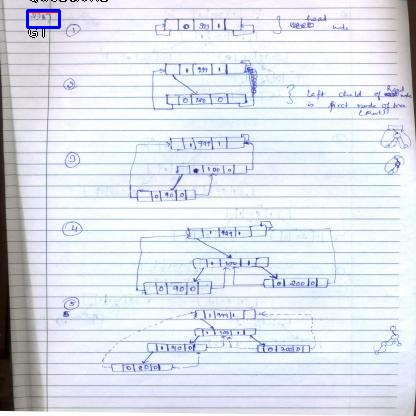 ①
0 999 1
head
node
②
1 999 1
0 100 0
Left child of head node
is first node of tree
(Root)
③
1 999 1
100 0
0 90 0
4
1 999 1
1 100 1
0 90 0
0 200 0
⑤
1 999 1
1 100 1
1 90 0
0 200 0
0 80 0